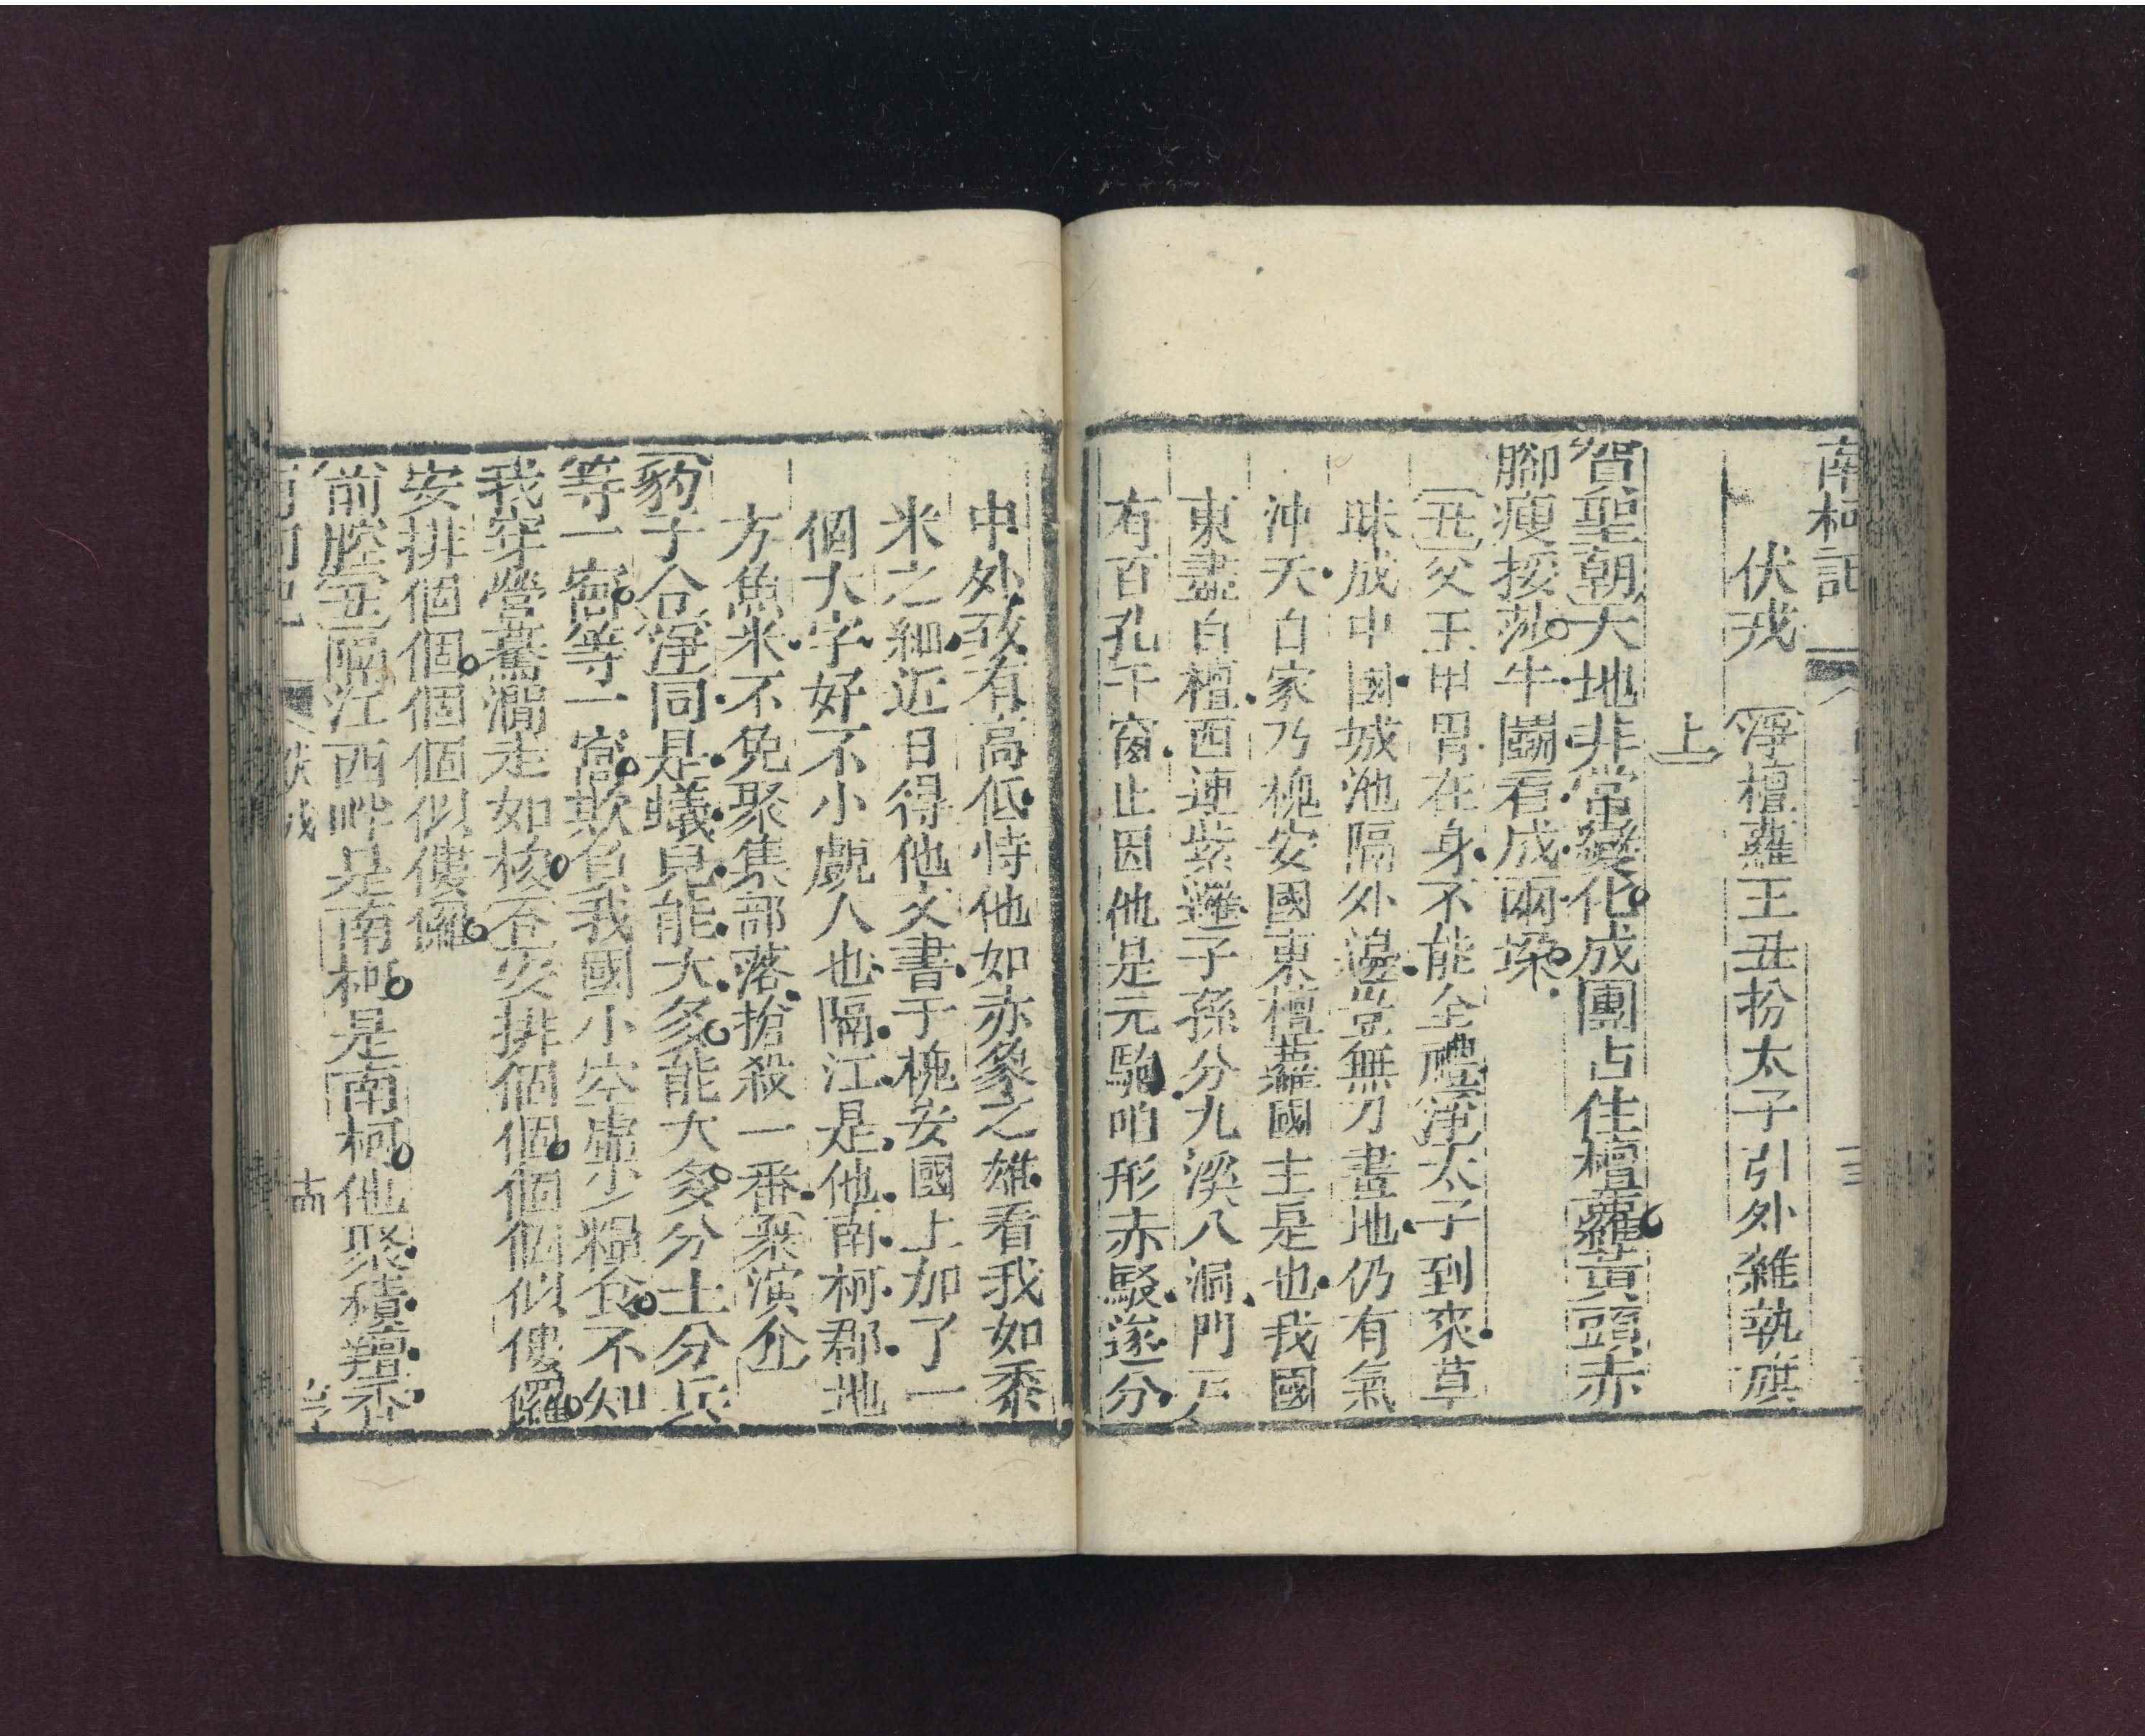 南柯記
伏戎
淨檀蘿王丑扮太子引外雜執旗
上
賀聖朝天地非常變化成團占住檀蘿黃頭赤
腳瘦挼莎牛鬬看成兩垜
丑父王甲冑在身不能全禮淨太子到來草
昧成中國城池隔外邊豈無刀畫地仍有氣
沖天自家乃槐安國東檀蘿國主是也我國
東盡白檀西連紫邏子孫分九溪八洞門戶
有百孔千窗止因他是元駒咱形赤駁遂分
中外致有高低恃他如赤象之雄看我如黍
米之細近日得他文書于槐安國上加了一
個大字好不小覷人也隔江是他南柯郡地
方魚米不免聚集部落搶殺一番衆演介
豹子令淨同是蟻兒能大多能大多分土分兵
等一窩等一窩欺負我國小空虛少糧食不知
我穿營驀澗走如梭丕安排個個個個似僂儸
安排個個個個似僂儸
前腔丑隔江西畔是南柯是南柯他聚積羶香
伏戎
十四